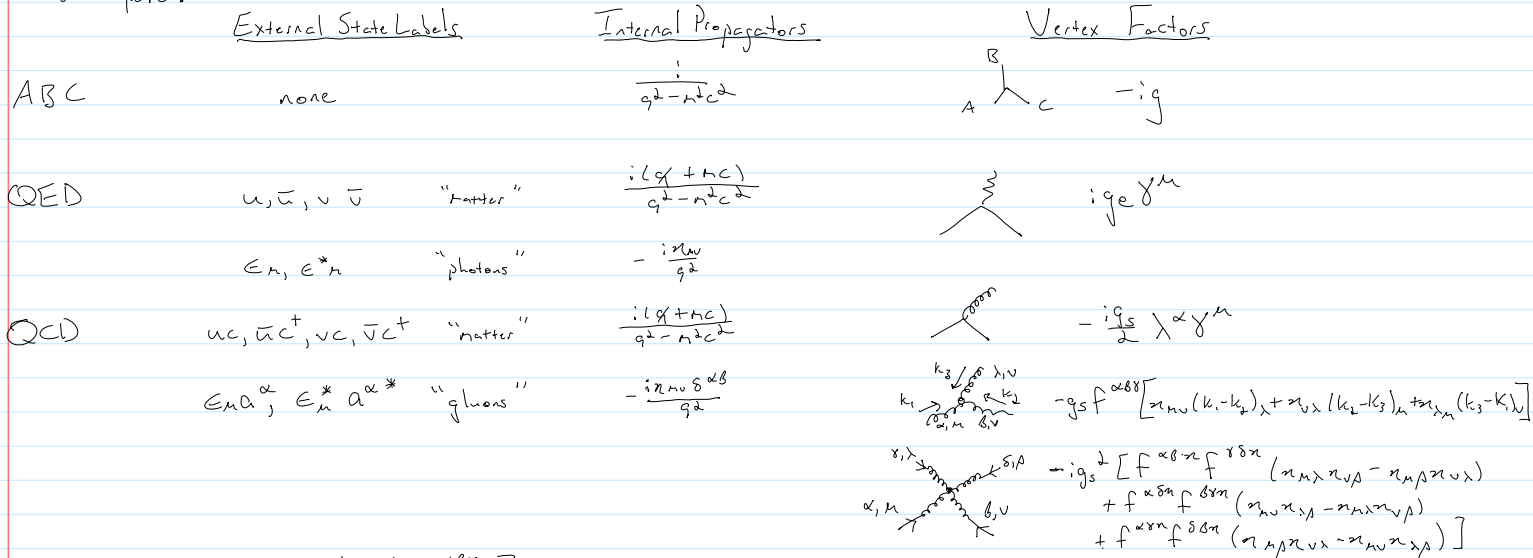 External State Labels Internal Propagators Vertex Factors
ABC none i / (q² - m²c²) B A C -ig
QED u, ū, v v̄ "matter" i(q̸ + mc) / (q² - m²c²) ige γ^μ
ϵμ, ϵ*μ "photons" - iημν / q²
QCD uc, ūc†, vc, v̄c† "matter" i(q̸ + mc) / (q² - m²c²) - igs/2 λ^α γ^μ
ϵμ a^α, ϵ*μ a^α* "gluons" - iημν δ^αβ / q² k₁ k₃ k₂ λ,ν α,μ β,ν -gs f^αβγ [ημν (k₁-k₂)λ + ηνλ (k₂-k₃)μ + ηλμ (k₃-k₁)ν]
γ,λ δ,ρ α,μ β,ν -igs² [f^αβη f^γδη (ημλ ηνρ - ημρ ηνλ)
+ f^αδη f^βγη (ημν ηλρ - ημλ ηνρ)
+ f^αγη f^δβη (ημρ ηνλ - ημν ηλρ)]